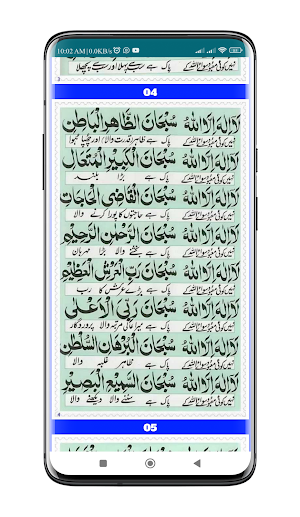 10:02 AM | 0.0KB/s
پاک ہے سب سے پہلا اور سب سے پچھلا
3
04
لَا اِلٰهَ اِلَّا اللهُ سُبْحَانَ الظَّاهِرِ الْبَاطِنِ
نہیں کوئی معبود سوا اللہ کے پاک ہے ظاہر قدرت والا اور چھپا ہوا
لَا اِلٰهَ اِلَّا اللهُ سُبْحَانَ الْكَبِيْرِ الْمُتَعَالِ
نہیں کوئی معبود سوا اللہ کے پاک ہے بڑا بلند
لَا اِلٰهَ اِلَّا اللهُ سُبْحَانَ الْقَاضِي الْحَاجَاتِ
نہیں کوئی معبود سوا اللہ کے پاک ہے حاجتوں کا پورا کرنے والا
لَا اِلٰهَ اِلَّا اللهُ سُبْحَانَ الرَّحْمٰنِ الرَّحِيْمِ
نہیں کوئی معبود سوا اللہ کے پاک ہے بخشنے والا بڑا مہربان
لَا اِلٰهَ اِلَّا اللهُ سُبْحَانَ رَبِّ الْعَرْشِ الْعَظِيْمِ
نہیں کوئی معبود سوا اللہ کے پاک ہے بڑے عرش کا رب
لَا اِلٰهَ اِلَّا اللهُ سُبْحَانَ رَبِّيَ الْاَعْلٰى
نہیں کوئی معبود سوا اللہ کے پاک ہے میرا عالی مرتبہ والا پروردگار
لَا اِلٰهَ اِلَّا اللهُ سُبْحَانَ الْبُرْهَانِ السُّلْطَانِ
نہیں کوئی معبود سوا اللہ کے پاک ہے ظاہر غلبہ والا
لَا اِلٰهَ اِلَّا اللهُ سُبْحَانَ السَّمِيْعِ الْبَصِيْرِ
نہیں کوئی معبود سوا اللہ کے پاک ہے سننے والا دیکھنے والا
4
05